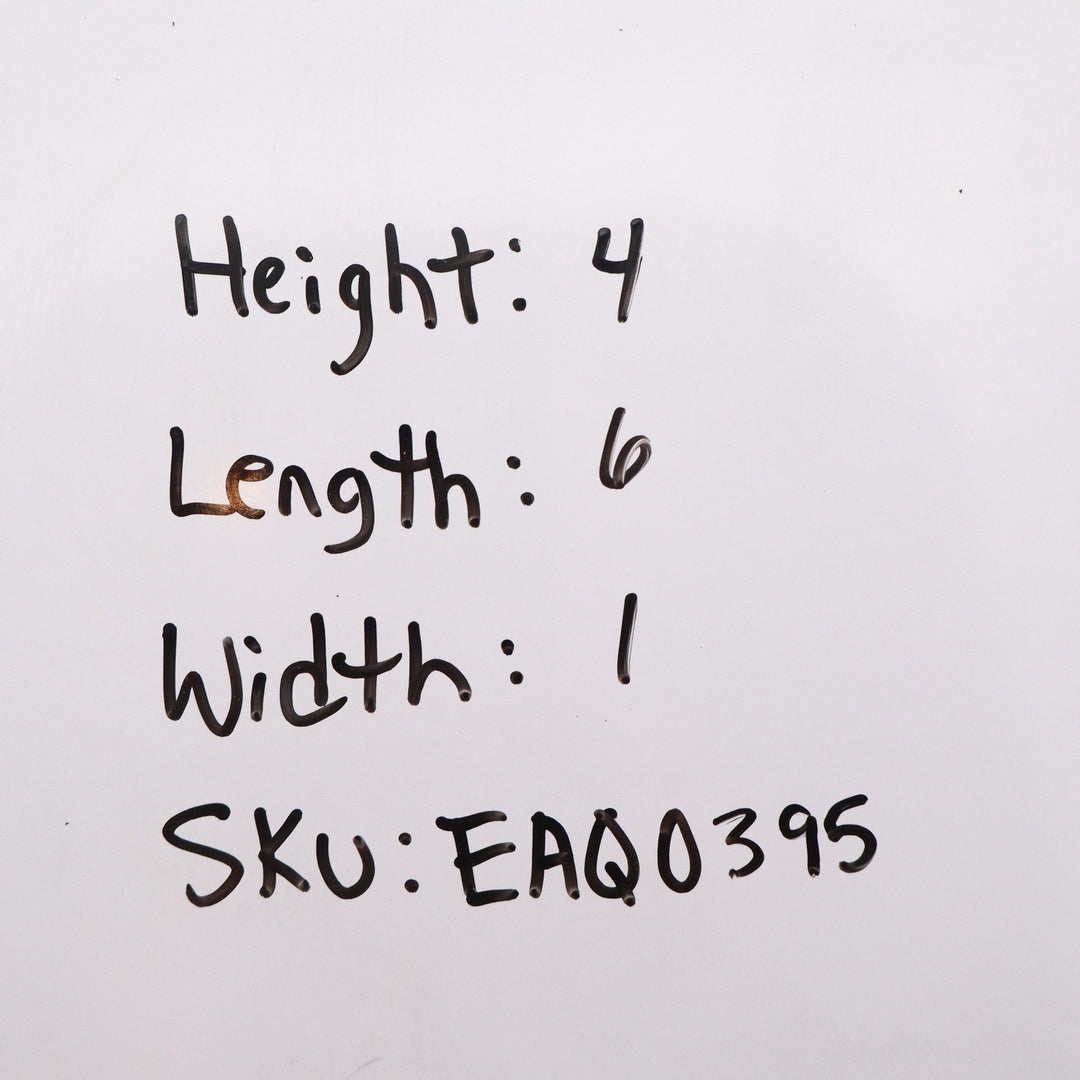 Height: 4
Length: 6
Width: 1
SKU: EAQ0395